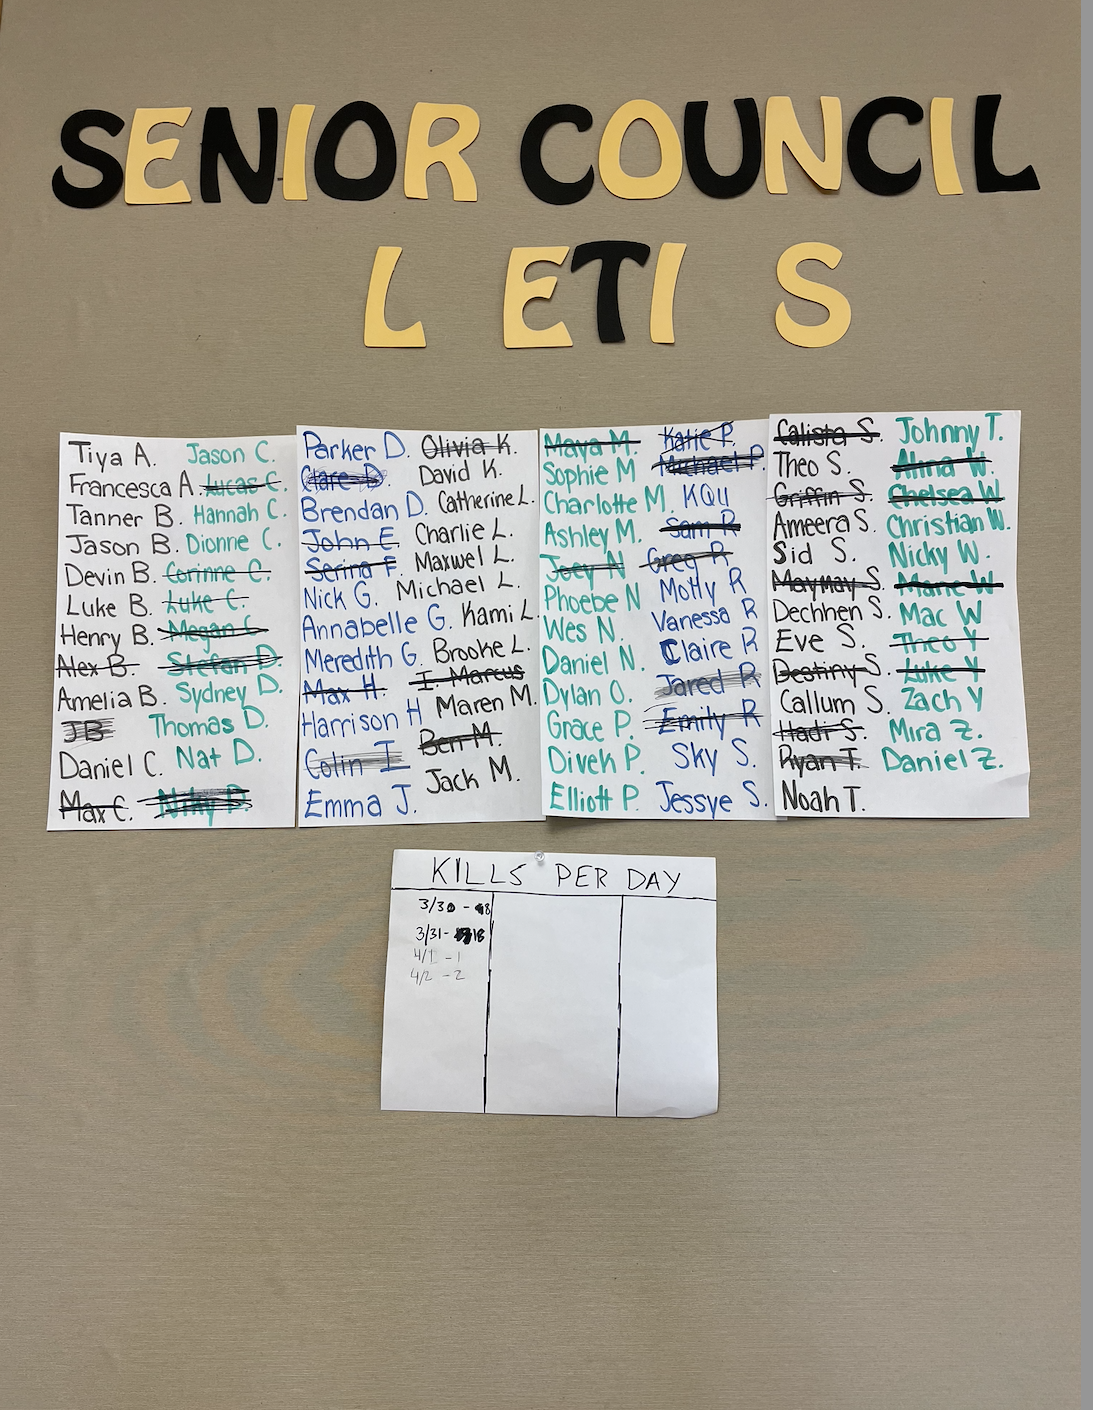 SENIOR COUNCIL
L ETI S
Tiya A. Jason C.
Francesca A. Lucas C.
Tanner B. Hannah C.
Jason B. Dionne C.
Devin B. Corinne C.
Luke B. Luke C.
Henry B. Megan C.
Alex B. Stefan D.
Amelia B. Sydney D.
JB Thomas D.
Daniel C. Nat D.
Max C. Niky D.
Parker D. Olivia K.
Clare D. David K.
Brendan D. Catherine L.
John E. Charlie L.
Serina F Maxwel L.
Nick G. Michael L.
Annabelle G. Kami L.
Meredith G. Brooke L.
Max H. I. Marcus
Harrison H Maren M.
Colin I Ben M.
Emma J. Jack M.
Maya M. Katie P.
Sophie M Michael P.
Charlotte M. KQu
Ashley M. Sam R
Joey N Greg R
Phoebe N Molly R
Wes N. Vanessa R
Daniel N. Claire R
Dylan O. Jared R
Grace P. Emily R
Divek P. Sky S.
Elliott P. Jessye S.
Calista S. Johnny T.
Theo S. Alina W.
Griffin S. Chelsea W
Ameera S. Christian W.
Sid S. Nicky W.
Maymay S. Marie W
Dechhen S. Mac W
Eve S. Theo Y
Destiny S. Luke Y
Callum S. Zach Y
Hadi S. Mira Z.
Ryan T. Daniel Z.
Noah T.
KILLS PER DAY
3/30 - 8
3/31 - 18
4/1 - 1
4/2 - 2